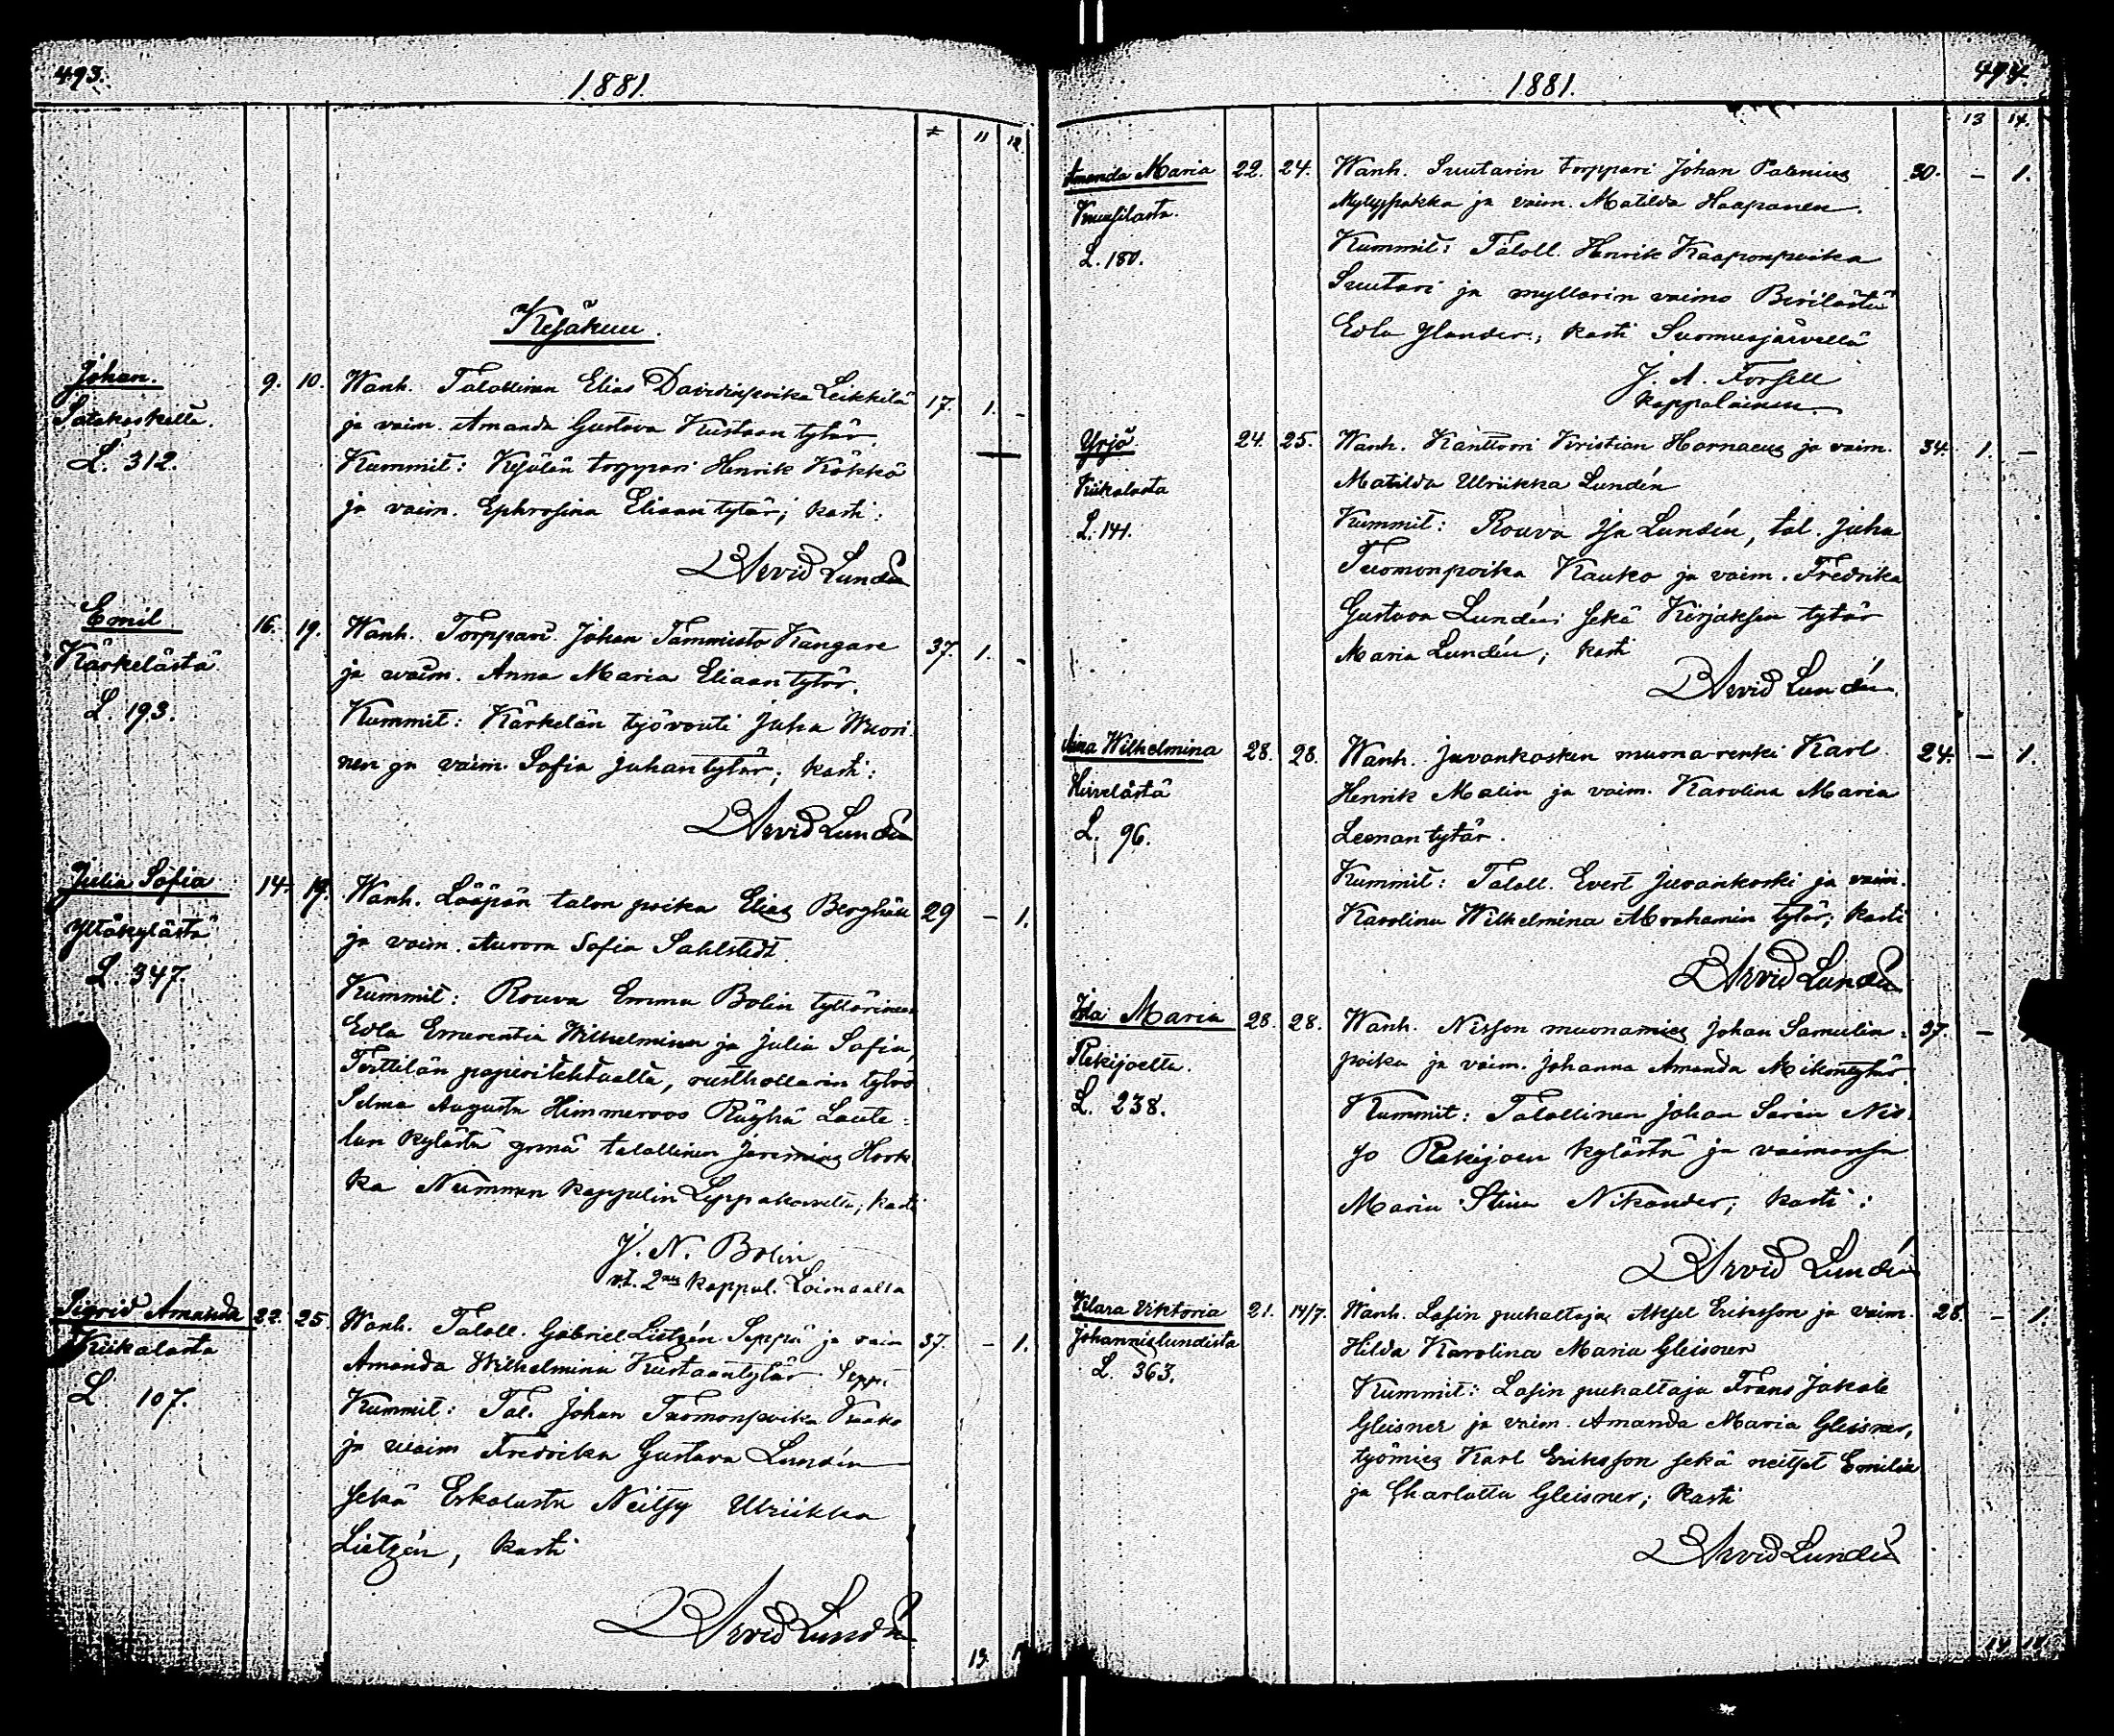 493.
1881.
11
12
Kesäkuu.
Johan.
Satakoskella.
L. 312.
9. 10.
Wanh. Talollinen Elias Davidinpoika Leikkilä
ja vaim. Amanda Gustava Kustaan tytär.
Kummit: Kesälän torppari Henrik Kökkö
ja vaim. Ephrosina Eliaan tytär; kasti:
17. 1. -
Arvid Lundén
Emil
Kärkelästä
L. 193.
16. 19.
Wanh. Torppari Johan Tammisto Kangare
ja vaim. Anna Maria Eliaan tytär.
Kummit: Kärkelän työvouti Juha Wuori
nen ja vaim. Sofia Juhan tytär; kasti:
37. 1. -
Arvid Lundén
Julia Sofia
Yltäkylästä
L. 347.
14. 19.
Wanh. Lääpän talon poika Elias Berghäll
ja vaim. Aurora Sofia Sahlstedt.
Kummit: Rouva Emma Bolin tyttärineen
Edla Emerentia Wilhelmina ja Julia Sofia,
Terttilän paperitehtaalta, rusthollarin tytär
Selma Augusta Himmeroos Räyhä Laute=
lan kylästä ynnä talollinen Jeremias Hork
ka Nummen kappelin Leppäkorvelta; kasti
29 - 1.
J. N. Bolin
v.t. 2nen kappal. Loimaalla
Sigrid Amanda
Kiikalasta
L 107.
22. 25.
Wanh. Taloll. Gabriel Lietzén Seppä ja vaim
Amanda Wilhelmina Kustaantytär Seppä
Kummit: Tal. Johan Tuomonpoika Kauko
ja vaim Fredrika Gustava Lundén
sekä Erkolasta Neitsy Ulriikka
Lietzén, kasti
37. - 1.
Arvid Lundén
13.
1881.
494.
13 14.
Amanda Maria
Kruusilasta.
L. 180.
22. 24.
Wanh. Suutarin torppari Johan Palenius
Myllypakka ja vaim. Matilda Haapanen.
Kummit: Taloll. Henrik Kaaponpoika
Suutari ja myllärin vaimo Berilästä
Edla Ylander; kasti Suomusjärvellä
30. - 1.
J. A. Forsell
kappalainen.
Yrjö
Kiikalasta
L. 141.
24. 25.
Wanh. Kanttori Kristian Hornaeus ja vaim.
Matilda Ulriikka Lundén
Kummit: Rouva Ija Lundén, tal. Juha
Tuomonpoika Kauko ja vaim. Fredrika
Gustava Lundén sekä Kirjaksen tytär
Maria Lundén; kasti
34. 1. -
Arvid Lundén.
Wilhelmina
Hirvelästä
L. 96.
28. 28.
Wanh. Juvankosken muona-renki Karl
Henrik Malin ja vaim. Karolina Maria
Leenan tytär.
Kummit: Taloll. Evert Juvankoski ja vaim.
Karolina Wilhelmina Abrahamin tytär; kasti
24. - 1.
Arvid Lundén
Ida Maria
Rekijoelta.
L. 238.
28. 28.
Wanh. Nisson muonamies Johan Samulin=
poika ja vaim. Johanna Amanda Mikontytär
Kummit: Talollinen Johan Sarén Nis=
so Rekijoen kylästä ja vaimonsa
Maria Stina Nikander; kasti:
37. -
Arvid Lundén
Klara Viktoria
Johannislundista
L. 363.
21. 14/7.
Wanh. Lasin puhaltaja Aksel Eriksson ja vaim.
Hilda Karolina Maria Gleisner
Kummit: Lasin puhaltaja Frans Jakob
Gleisner ja vaim. Amanda Maria Gleisner,
työmies Karl Eriksson sekä neitset Emilia
ja Charlotta Gleisner; kasti
28. - 1.
Arvid Lundén